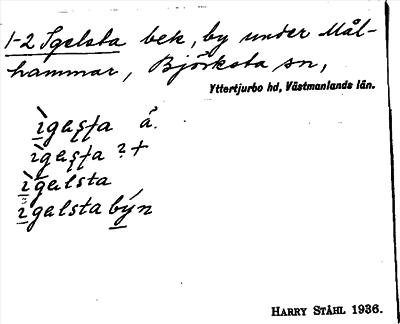 1-2 Igelsta bek, by under Mål-
hammar, Björksta sn,
Yttertjurbo hd, Västmanlands län.
ìgaʂʈa å.
ìgaʂʈa ? +
ìgalsta
ìgalstabýn
HARRY STÅHL 1936.